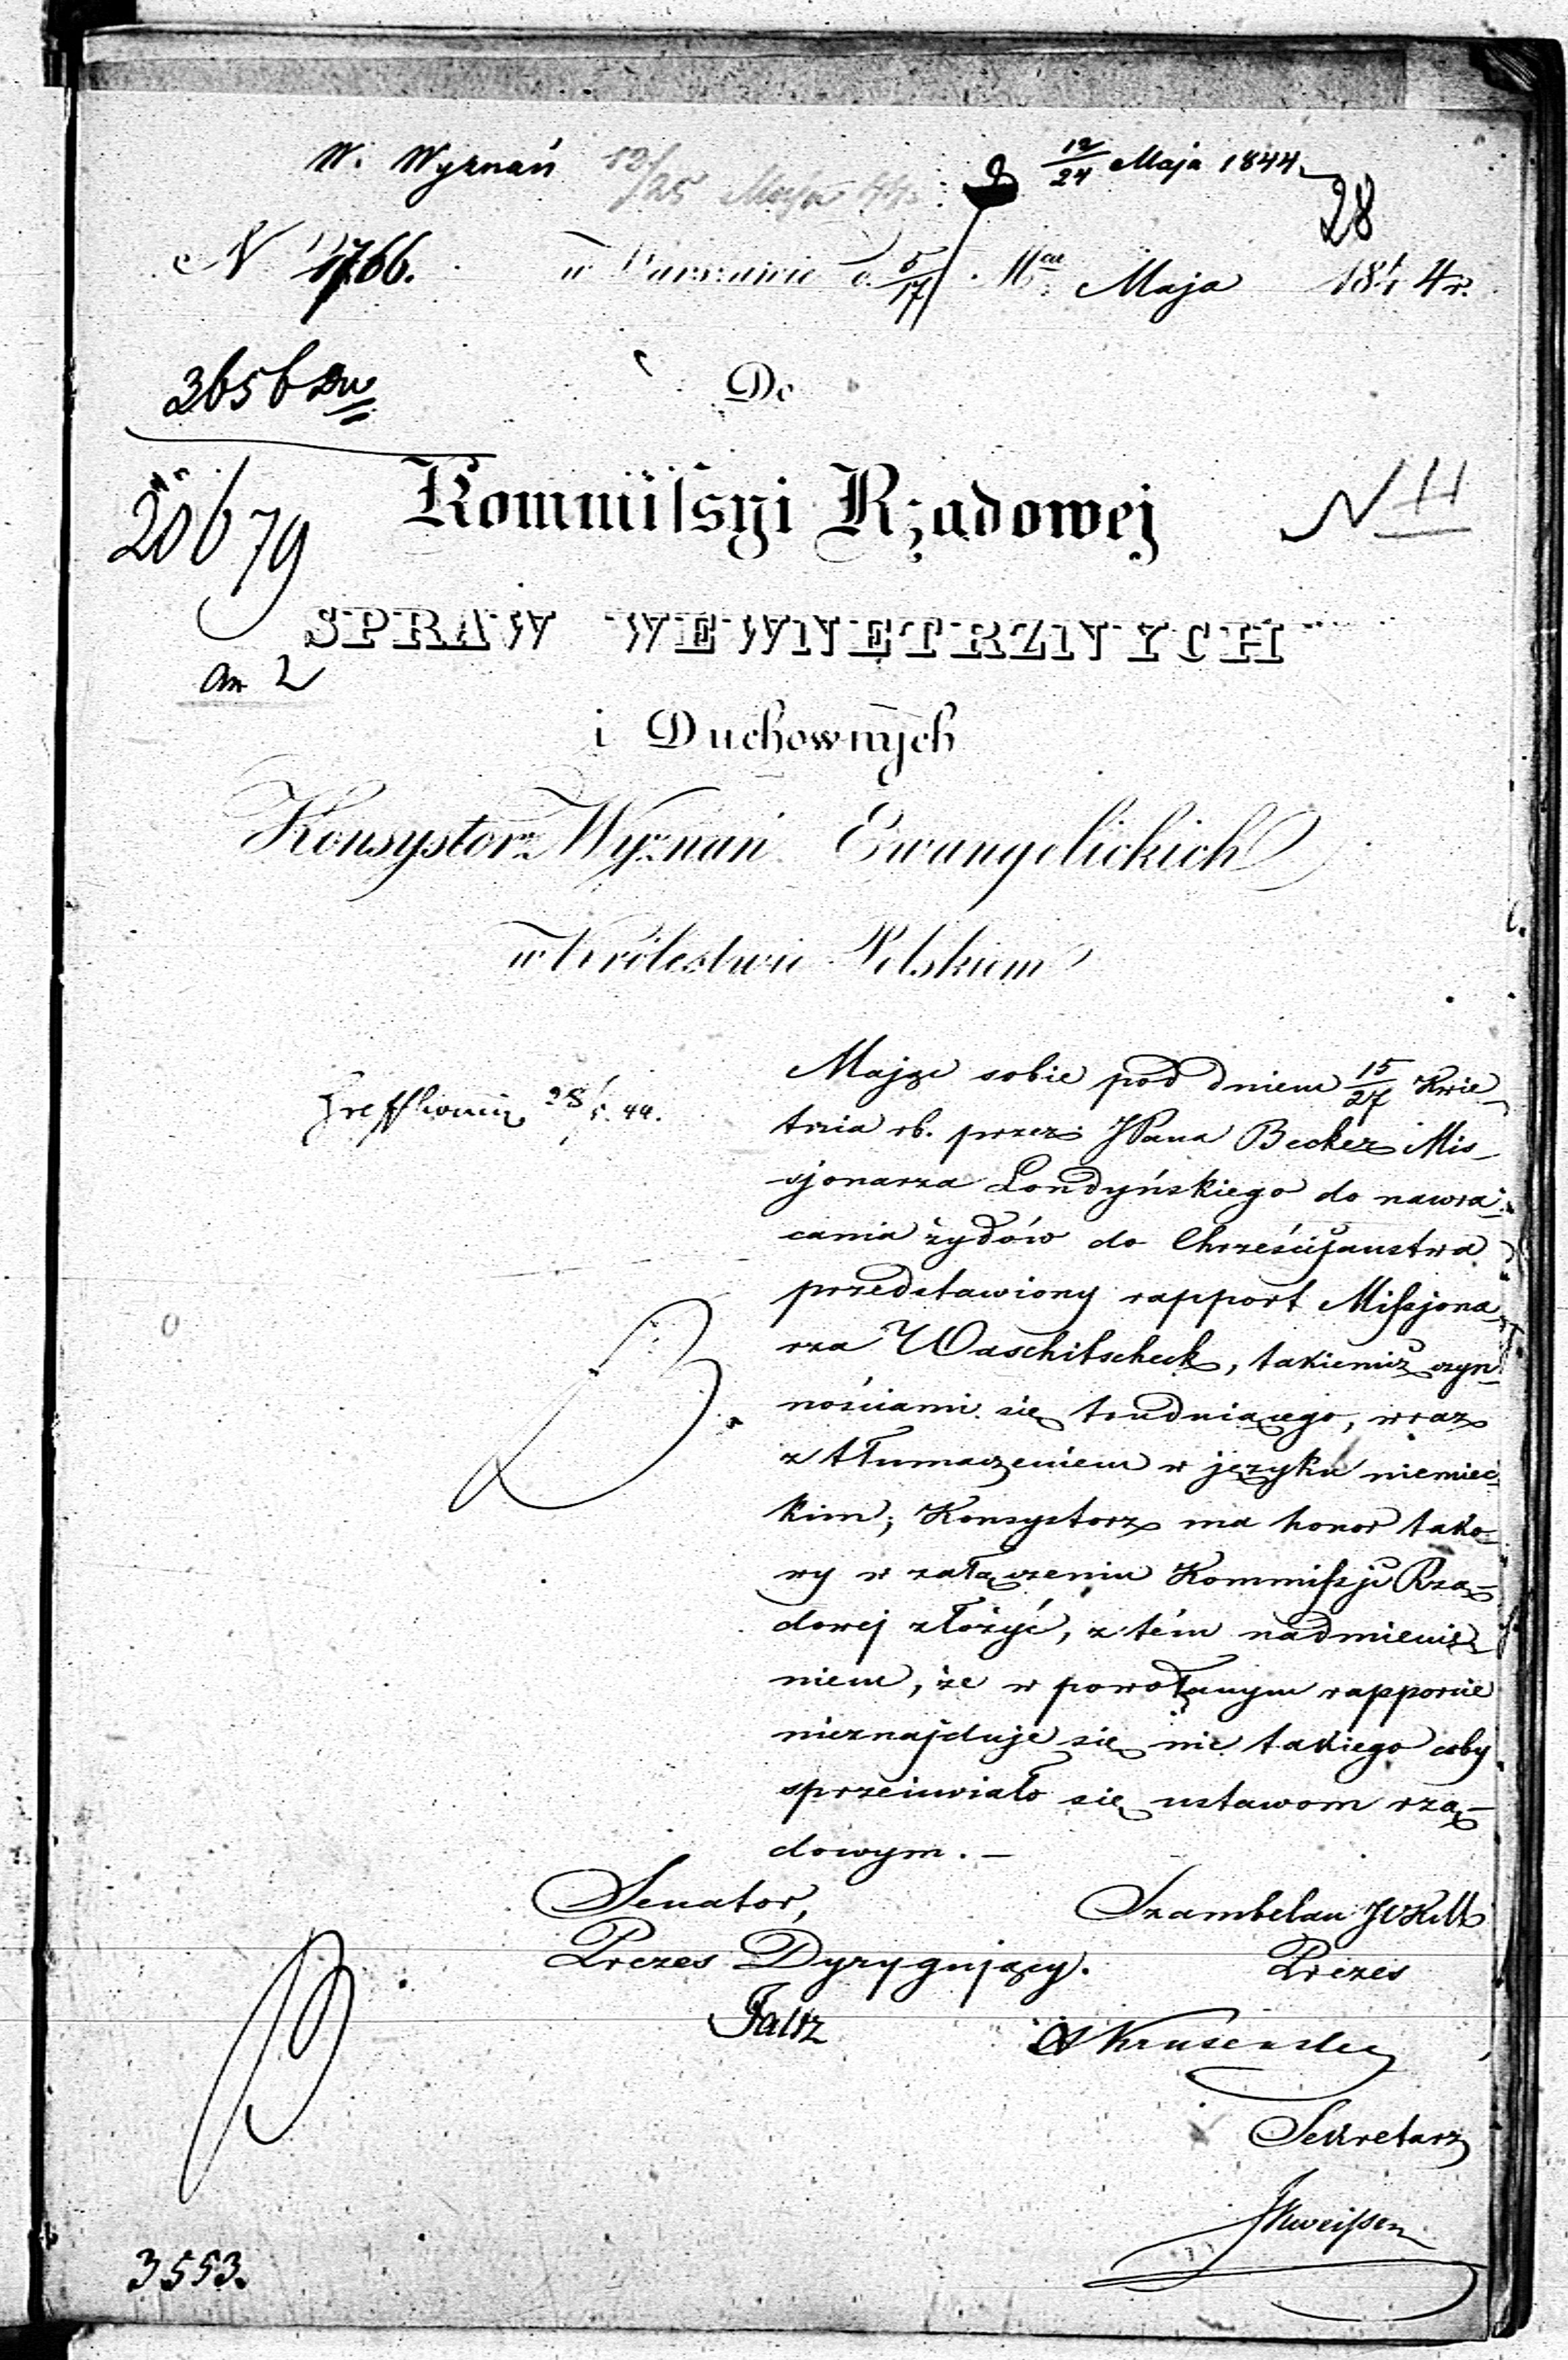 W. Wyznań 12/25 Maja 44 12/24 Maja 1844
28
N 1766. w Warszawie d. 5/17 Mca Maja 1844 r.
3656
Do
20679
Kommissyi Rządowej
N 11
SPRAW WEWNĘTRZNYCH
an 2
i Duchownych
Konsystorz Wyznań Ewangelickich
w Królestwie Polskiem
28/5. 44.
Mając sobie pod dniem 15/27 Kwie-
tnia rb. przez JPana Becker Mis-
sjonarza Londyńskiego do nawra-
cania żydów do Chrześcijaństwa
przedstawiony rapport Missjona-
rza Waschitscheck, takiemiż czyn-
nościami się trudniącego, wraz
z tłumaczeniem w języku niemiec-
kim; Konsystorz ma honor tako-
wy w załączeniu Kommissji Rzą-
dowej złożyć, z tém nadmienie-
niem, że w powołanym rapporcie
nieznajduje się nic takiego coby
sprzeciwiało się ustawom rzą-
dowym. —
Senator, Szambelan
Prezes Dyrygujący. Prezes
Sekretarz
3553.